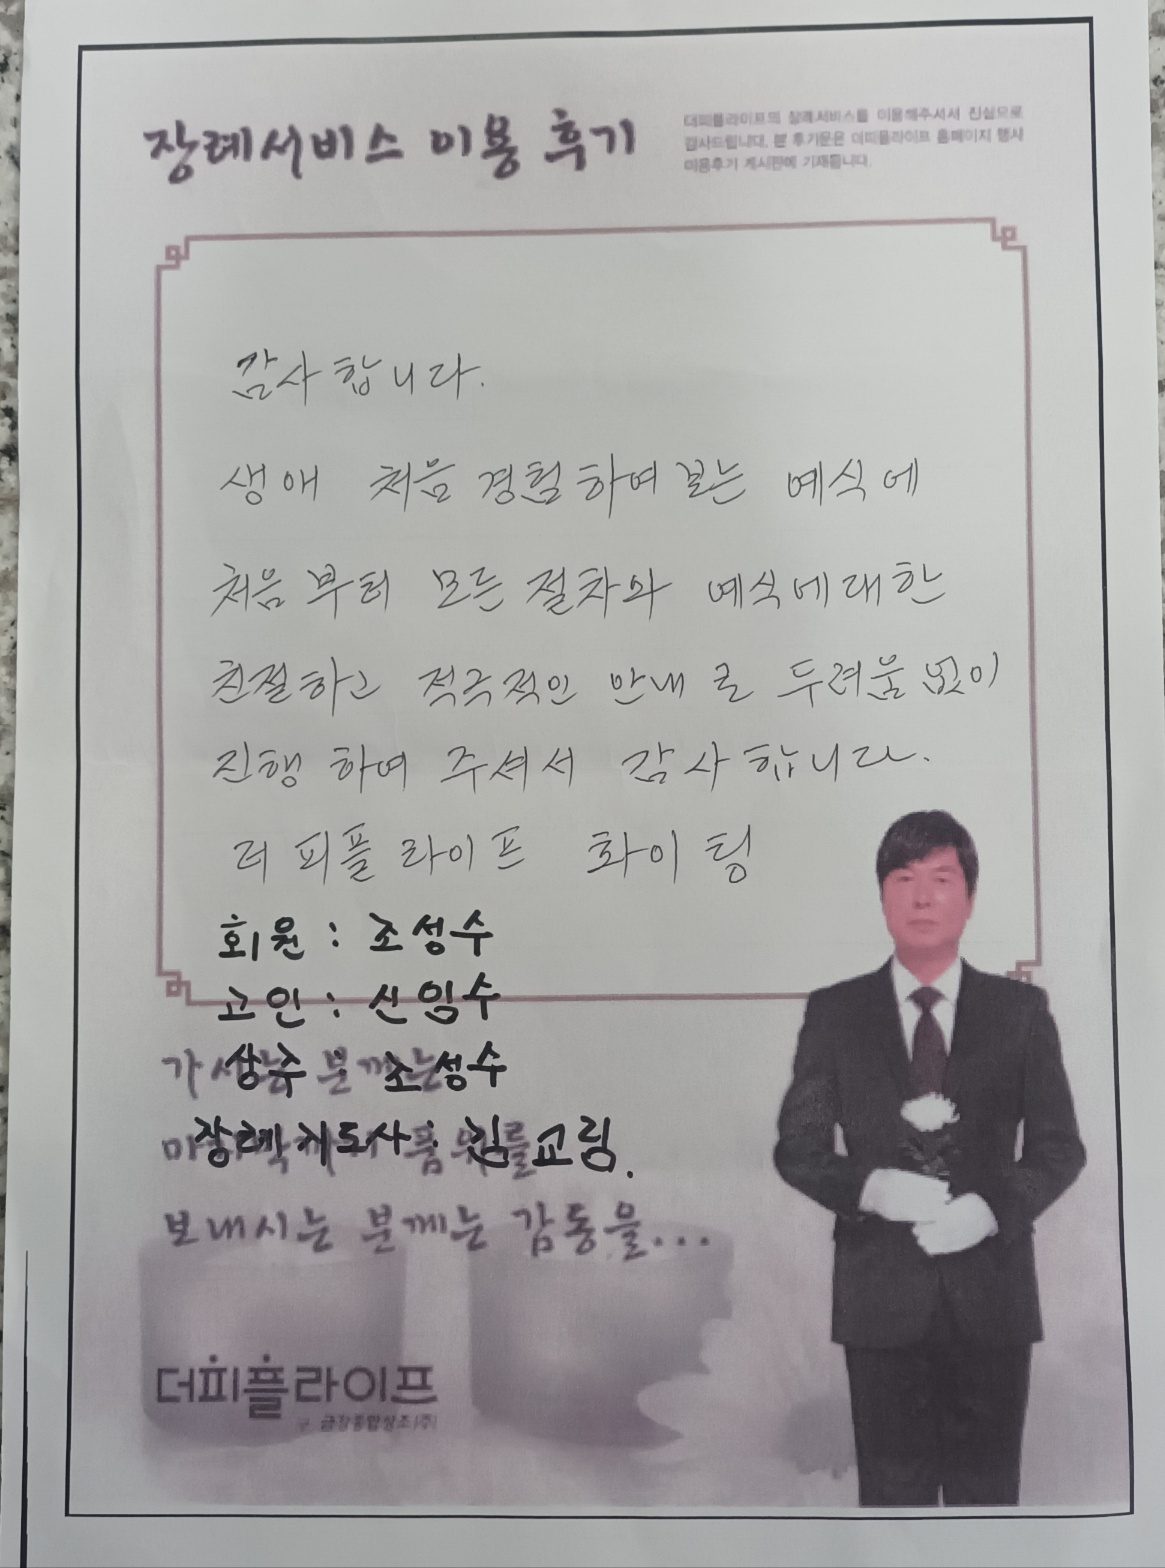 장례서비스 이용 후기
더피플라이프의 장례서비스를 이용해주셔서 진심으로
감사드립니다. 본 후기문은 더피플라이프 홈페이지 행사
이용후기 게시판에 기재됩니다.
감사합니다.
생애 처음 경험하여 보는 예식에
처음 부터 모든 절차와 예식에 대한
친절하고 적극적인 안내로 두려움 없이
진행 하여 주셔서 감사합니다.
더피플라이프 화이팅
회원 : 조성수
고인 : 신임수
상주 조성수
장례지도사 : 김교링.
보내시는 분께는 감동을...
더피플라이프
구 금강종합상조(주)